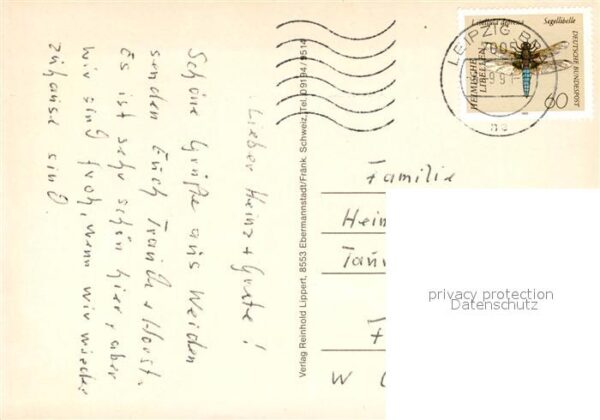 Lieber Heinz + Grete!
Schöne Grüße aus Weiden
senden Euch Traudl + Horst.
Es ist sehr schön hier, aber
wir sind froh, wenn wir wieder
zuhause sind.
Verlag Reinhold Lippert, 8553 Ebermannstadt/Fränk. Schweiz, Tel. 09194/9514
LEIPZIG BZ
7005
Segellibelle
HEIMISCHE
LIBELLEN
DEUTSCHE BUNDESPOST
60
Familie
Hein
W
privacy protection
Datenschutz